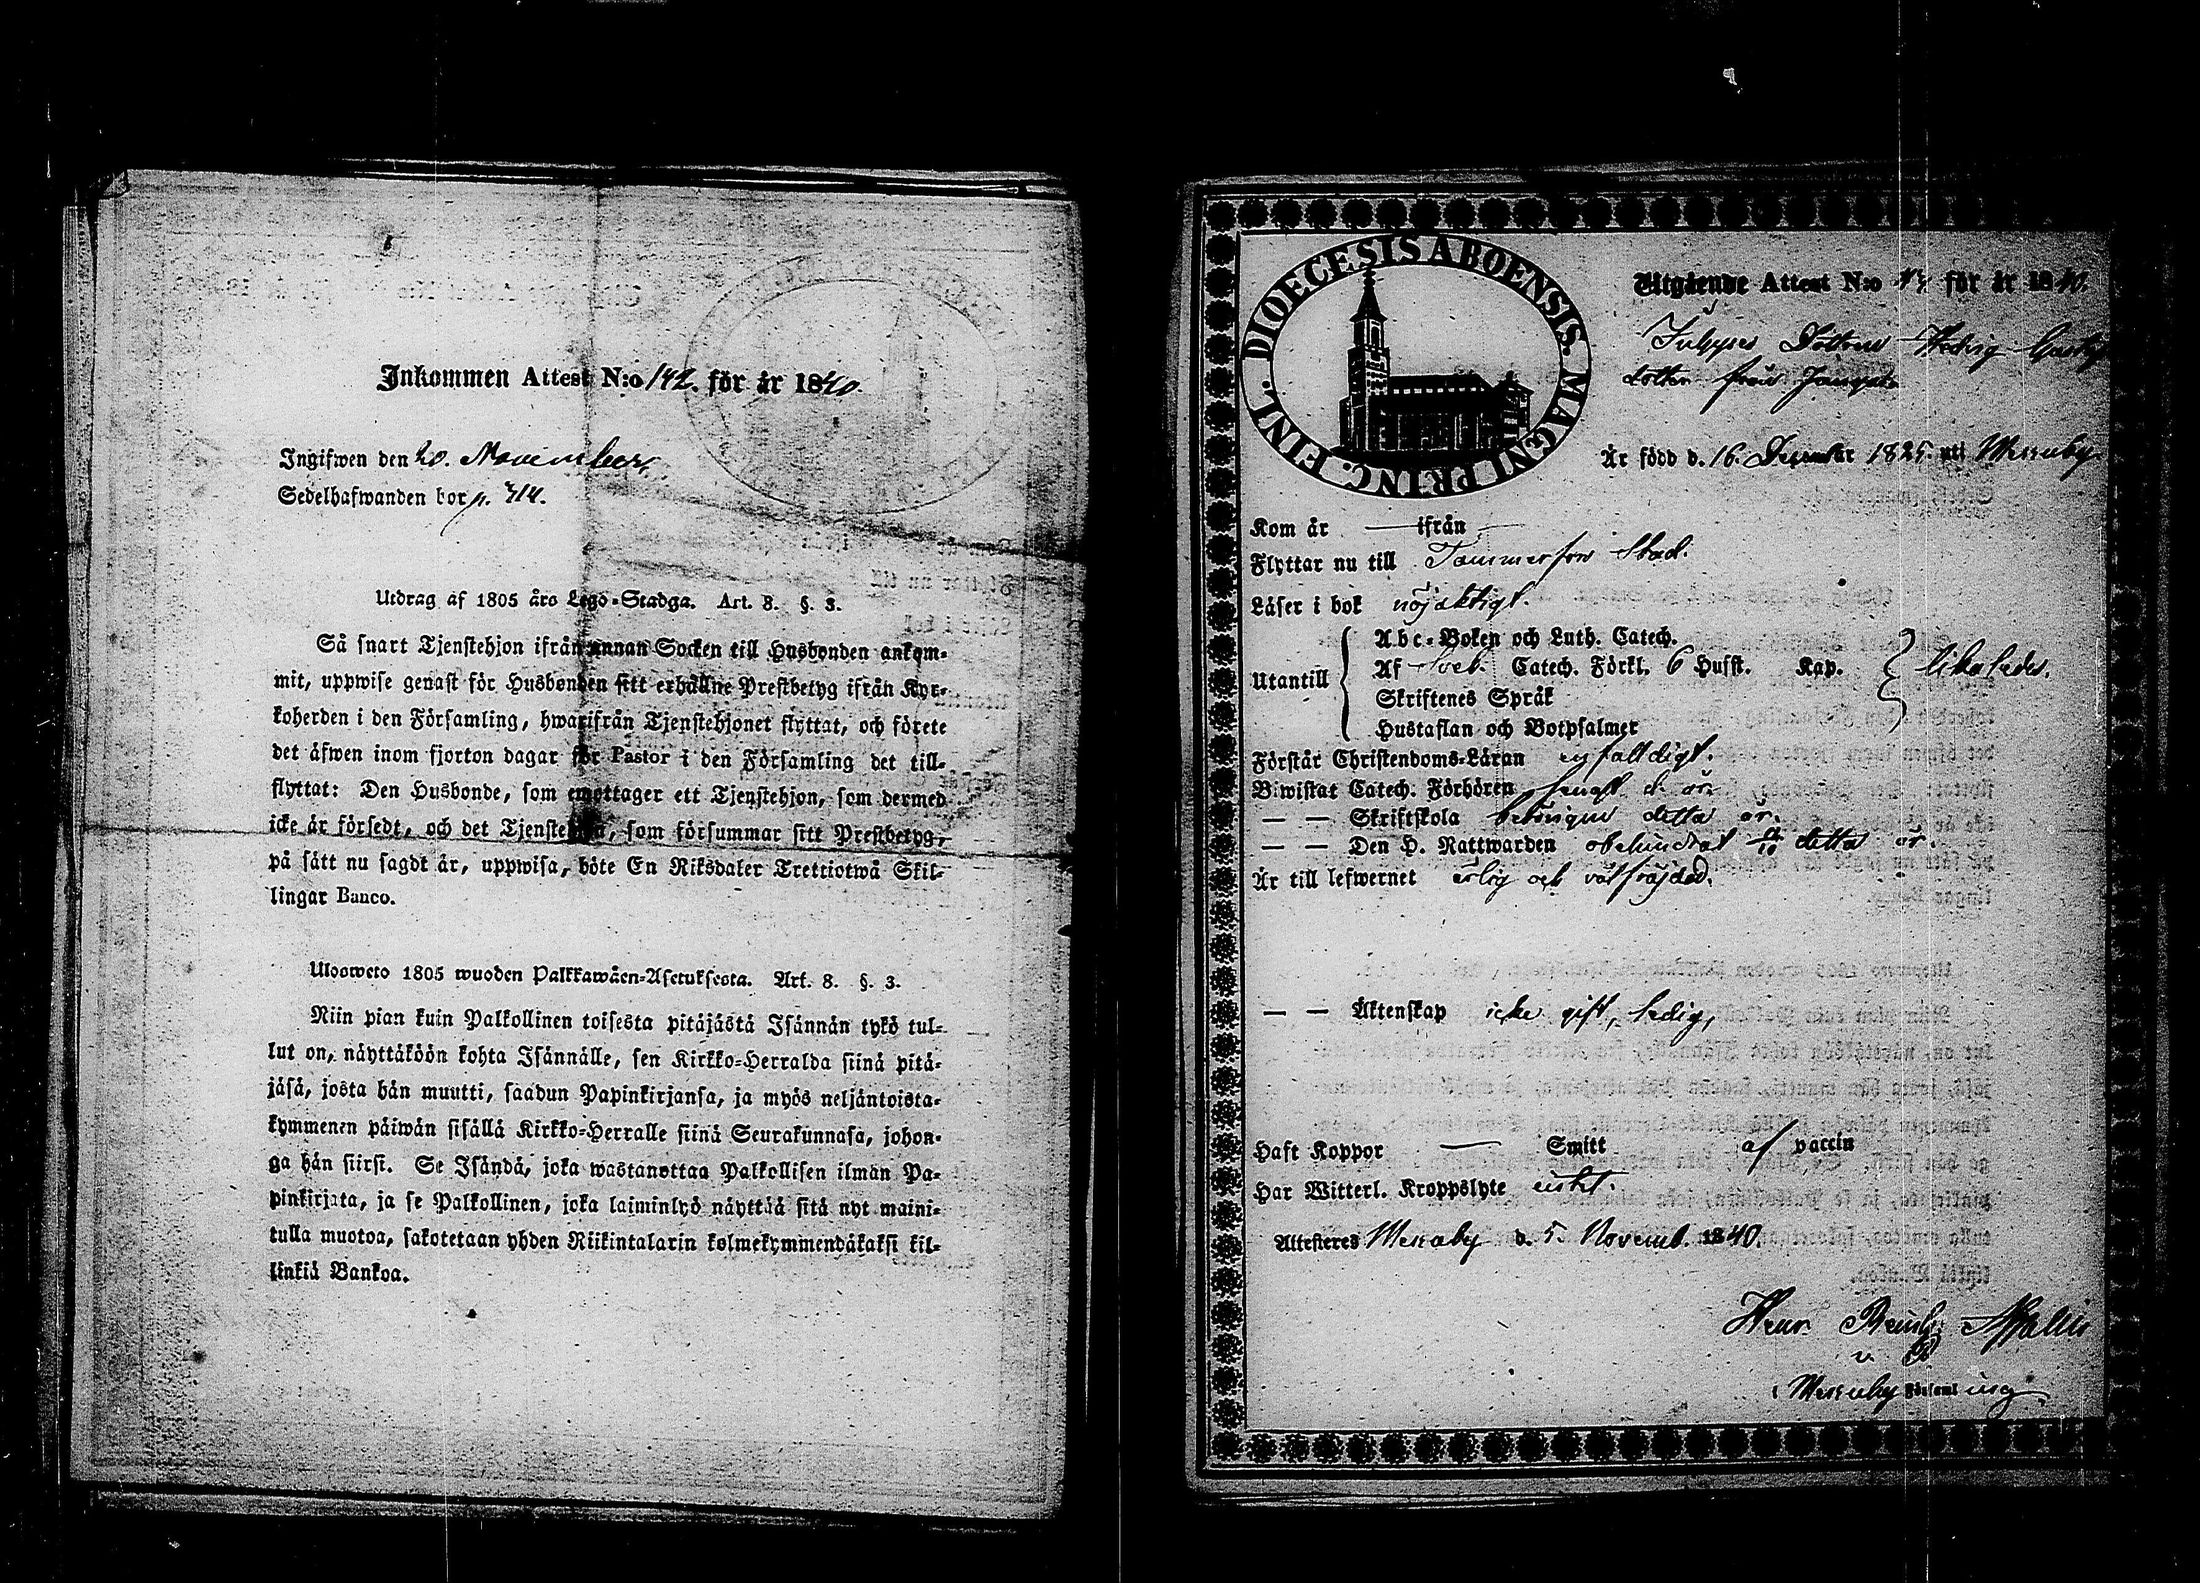 Inkommen Attest N:o 142. för år 1840.
Ingifwen den 20. November.
Sedelhafwanden bor p. 314.
Utdrag af 1805 års Lego-Stadga. Art. 8. §. 3.
Så snart Tjenstehjon ifrån annan Socken till Husbonden ankom-
mit, uppwise genast för Husbonden sitt erhållne Prestbetyg ifrån Kyr-
koherden i den Församling, hwarifrån Tjenstehjonet flyttat, och förete
det äfwen inom fjorton dagar för Pastor i den Församling det till-
flyttat: Den Husbonde, som emottager ett Tjenstehjon, som dermed
icke är försedt, och det Tjenstehjon, som försummar sitt Prestbetyg,
på sätt nu sagdt är, uppwisa, böte En Riksdaler Trettiotwå Skil-
lingar Banco.
Ulosweto 1805 wuoden Palkkawäen-Asetuksesta. Art. 8. §. 3.
Niin pian kuin Palkollinen toisesta pitäjästä Isännän tykö tul-
lut on, näyttäköön kohta Isännälle, sen Kirkko-Herralda siinä pitä-
jäsä, josta hän muutti, saadun Papinkirjansa, ja myös neljäntoista-
kymmenen päiwän sisällä Kirkko-Herralle siinä Seurakunnasa, johon-
ga hän siirsi. Se Isändä, joka wastanottaa Palkollisen ilman Pa-
pinkirjata, ja se Palkollinen, joka laiminlyö näyttää sitä nyt maini-
tulla muotoa, sakotetaan yhden Riikintalarin kolmekymmendäkaksi kil-
linkiä Bankoa.
DIOECESIS ABOENSIS. MAGNI PRINC. FINL.
Utgående Attest N:o för år 1840.
Dottren Hedvig Gustafs
dotter från
Är född d. 16. December 1825. uti Messuby
Kom år — ifrån —
Flyttar nu till Tammerfors Stad.
Läser i bok nöjaktigt.
Utantill
Abc-Boken och Luth. Catech.
Af Sveb. Catech. Förkl. 6 Hufst. Kap. likaledes.
Skriftenes Språk
Hustaflan och Botpsalmer
Förstår Christendoms-Läran enfaldigt.
Biwistat Catech. Förhören d. år
— — Skriftskola detta år.
— — Den H. Nattwarden obehindrat detta år.
Är till lefwernet ärlig och välfräjdad.
— — Äktenskap icke gift, ledig,
Haft Koppor — Smitt af vaccin
Har Witterl. Kroppslyte
Attesteres Messuby d. 5. Novemb. 1840.
Henr.
Messuby Församling